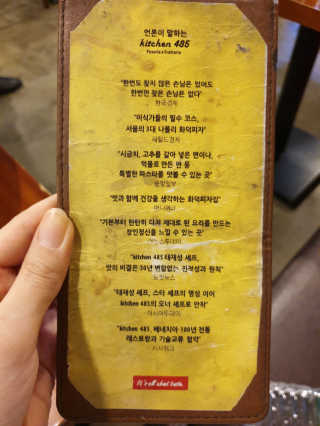 언론이 말하는
kitchen 485
Pizzeria e Trattoria
"한번도 찾지 않은 손님은 있어도
한번만 찾은 손님은 없다"
한국경제
"미식가들의 필수 코스,
서울의 3대 나폴리 화덕피자"
헤럴드경제
"시금치, 고추를 갈아 넣은 면이나,
먹물로 만든 면 등
특별한 파스타를 맛볼 수 있는 곳"
중앙일보
"맛과 함께 건강을 생각하는 화덕피자집"
머니위크
"기본부터 탄탄히 다져 제대로 된 요리를 만드는
장인정신을 느낄 수 있는 곳"
"kitchen 485 태재성 셰프,
맛의 비결은 30년 변함없는 진정성과 원칙"
"태재성 셰프, 스타 셰프의 명성 이어
kitchen 485의 오너 셰프로 안착"
아시아투데이
"kitchen 485, 베네치아 100년 전통
레스토랑과 기술교류 협약"
시사위크
It's all about taste.